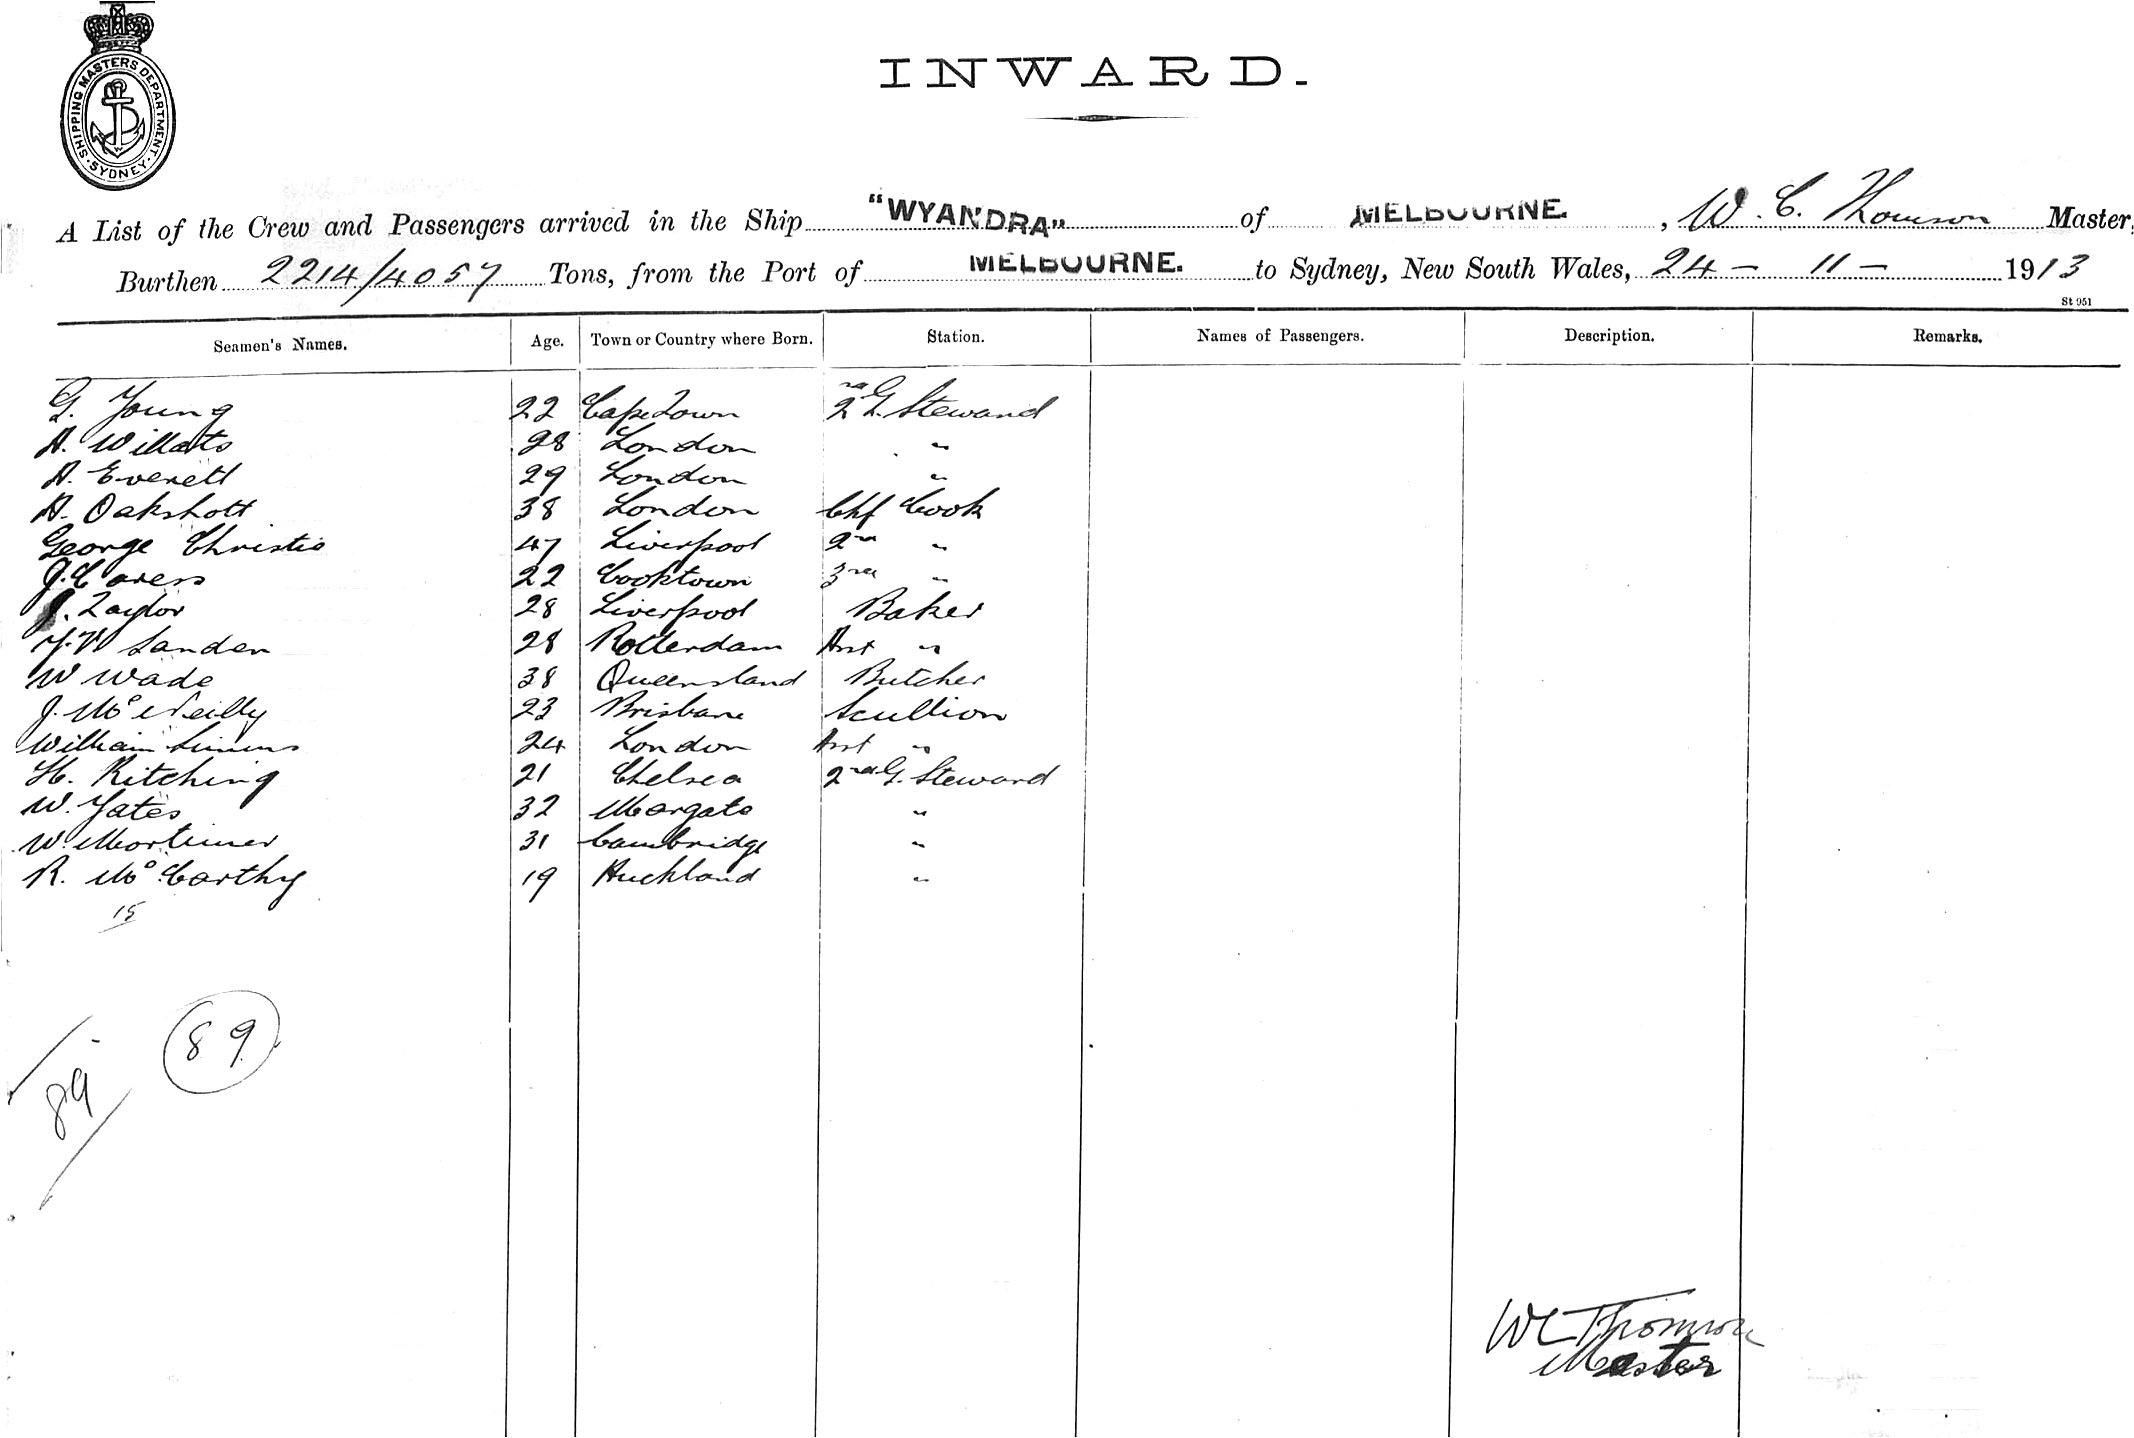 SHIPPING MASTERS DEPARTMENT · SYDNEY ·
INWARD.
A List of the Crew and Passengers arrived in the Ship "WYANDRA" of MELBOURNE. , W. C. Thomson Master,
Burthen 2214/4057 Tons, from the Port of MELBOURNE. to Sydney, New South Wales, 24 - 11 - 1913
St 951
Seamen's Names. Age. Town or Country where Born. Station. Names of Passengers. Description. Remarks.
G. Young 22 Cape Town 2nd G. Steward
A. Willats 28 London "
A. Everett 29 London "
A. Oakshott 38 London Chf Cook
George Christie 47 Liverpool 2nd "
J. Caress 22 Cooktown 3rd "
J. Taylor 28 Liverpool Baker
Sanden 28 Rotterdam Asst "
W Wade 38 Queensland Butcher
J. McNeilly 23 Brisbane Scullion
William Simms 24 London Asst "
H. Kitching 21 Chelsea 2nd G. Steward
W. Yates 32 Margate "
W. Mortimer 31 Cambridge "
R. McCarthy 19 Auckland "
15
89
89
WC Thomson
Master